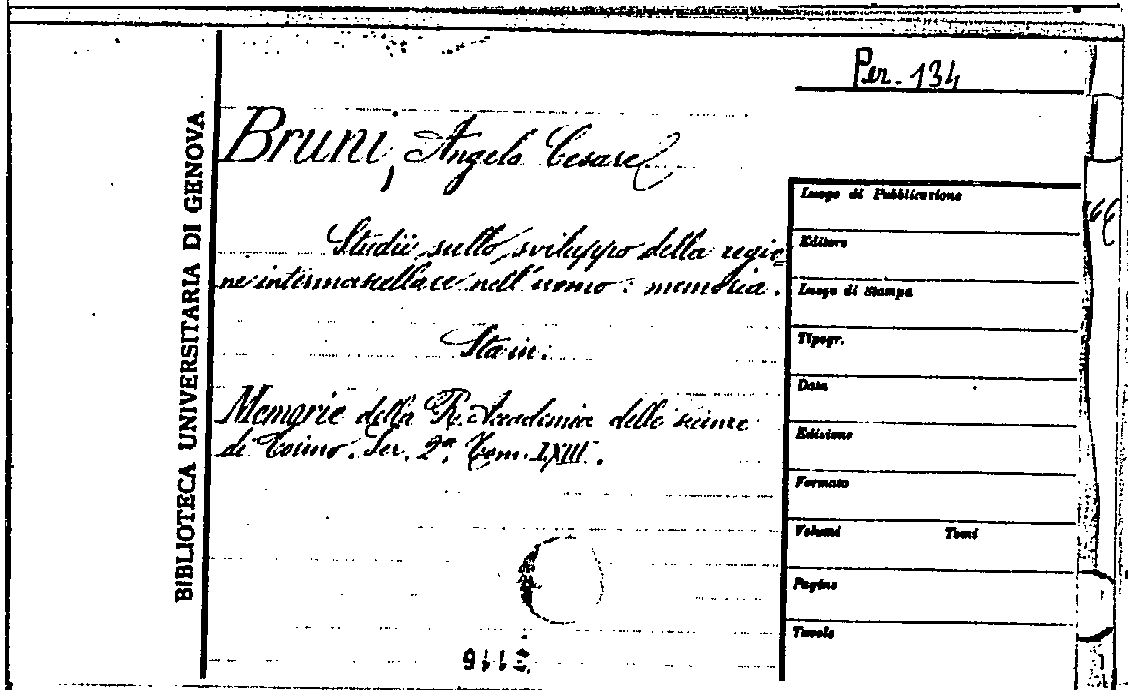 Per. 134
BIBLIOTECA UNIVERSITARIA DI GENOVA
Bruni, Angelo Cesare
Studii sullo sviluppo della regio=
ne intermascellare nell'uomo: memoria.
Sta in:
Memorie della R. Accademia delle scienze
di Torino. Ser. 2ª. Tom. LXIII.
Luogo di Pubblicazione
Editore
Luogo di Stampa
Tipogr.
Data
Edizione
Formato
Volumi Tomi
Pagine
Tavole